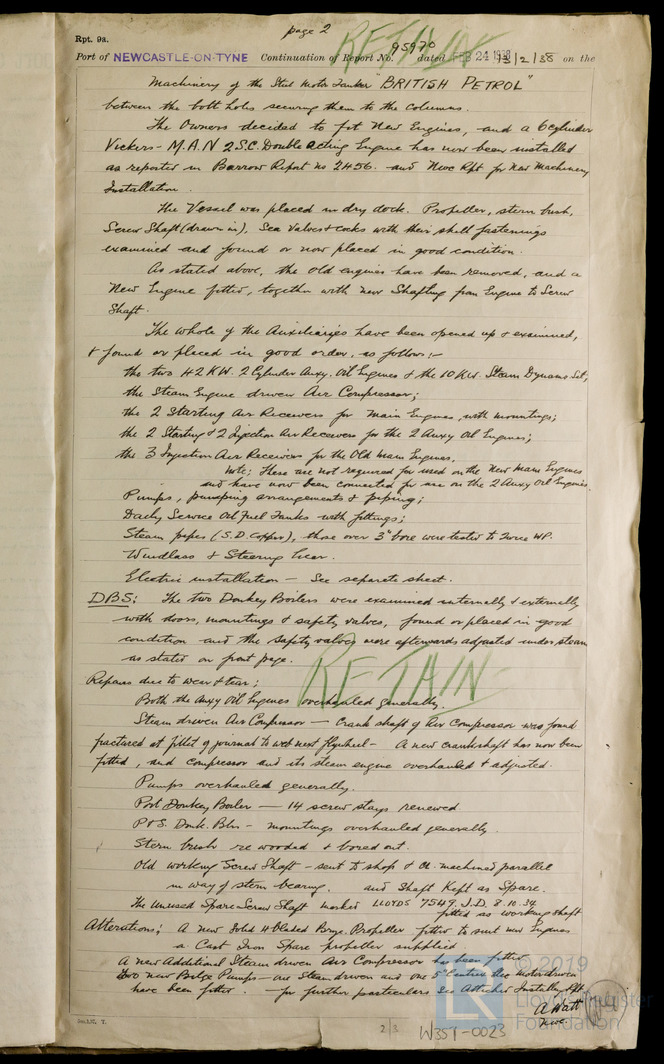 page 2
Rpt. 9a.
RETAIN
Port of NEWCASTLE-ON-TYNE Continuation of Report No. 95970 dated FEB 24 1938 /2/38 on the
Machinery of the Steel Motor Tanker "BRITISH PETROL"
between the bolt holes securing them to the columns.
The Owners decided to fit New Engines, and a 6 cylinder
Vickers - M.A.N 2.S.C. Double acting Engine has now been installed
as reported in Barrow Report No 2456. and Nwc Rpt for New Machinery
Installation.
The Vessel was placed in dry dock. Propeller, stern bush,
Screw Shaft (drawn in), Sea Valves & cocks with their shell fastenings
examined and found or now placed in good condition.
As stated above, the old engines have been removed, and a
New Engine fitted, together with new Shafting from Engine to Screw
Shaft.
The whole of the Auxiliaries have been opened up & examined,
& found or placed in good order, as follows:-
the two 42 KW. 2 Cylinder Auxy. Oil Engines & the 10 KW. Steam Dynamo Set,
the Steam Engine driven Air Compressor;
the 2 Starting Air Receivers for Main Engines, with mountings;
the 2 Starting & 2 Injection Air Receivers for the 2 Auxy Oil Engines;
the 3 Injection Air Receivers for the Old Main Engines.
Note: These are not required for used on the New Main Engines
and have now been connected for use on the 2 Auxy Oil Engines.
Pumps, pumping arrangements & piping;
Daily Service Oil Fuel Tanks with fittings;
Steam pipes (S.D. copper), those over 3" bore were tested to Twice WP.
Windlass & Steering Gear.
Electric installation - See separate sheet.
DBS: The two Donkey Boilers were examined internally & externally
with doors, mountings & safety valves, found or placed in good
condition and the safety valves were afterwards adjusted under steam
as stated on front page.
RETAIN
Repairs due to wear & tear:
Both the Auxy Oil Engines overhauled generally.
Steam driven Air Compressor - Crank shaft of Air Compressor was found
fractured at fillet of journal to web next flywheel - A new crankshaft has now been
fitted, and compressor and its steam engine overhauled & adjusted.
Pumps overhauled generally.
Port Donkey Boiler - 14 screw stays renewed
P & S. Donk. Blrs - mountings overhauled generally.
Stern bush re wooded & bored out.
Old working Screw Shaft - sent to shop & machined parallel
in way of stern bearing. and Shaft Kept as Spare.
The unused Spare Screw Shaft marked LLOYDS 7549. J.D. 8.10.34
fitted as working shaft
Alterations; A new Solid 4 Bladed Bronze Propeller fitted to suit new Engines
a Cast Iron Spare propeller supplied
A new Additional Steam driven Air Compressor has been fitted
Two new Bilge Pumps - one Steam driven and one 5" motor driven
have been fitted. - for further particulars See Attached Installn Rpt.
A. Watt
Nwc.
© 2019
LR
Lloyd's Register
Foundation
2/3
W357-0023